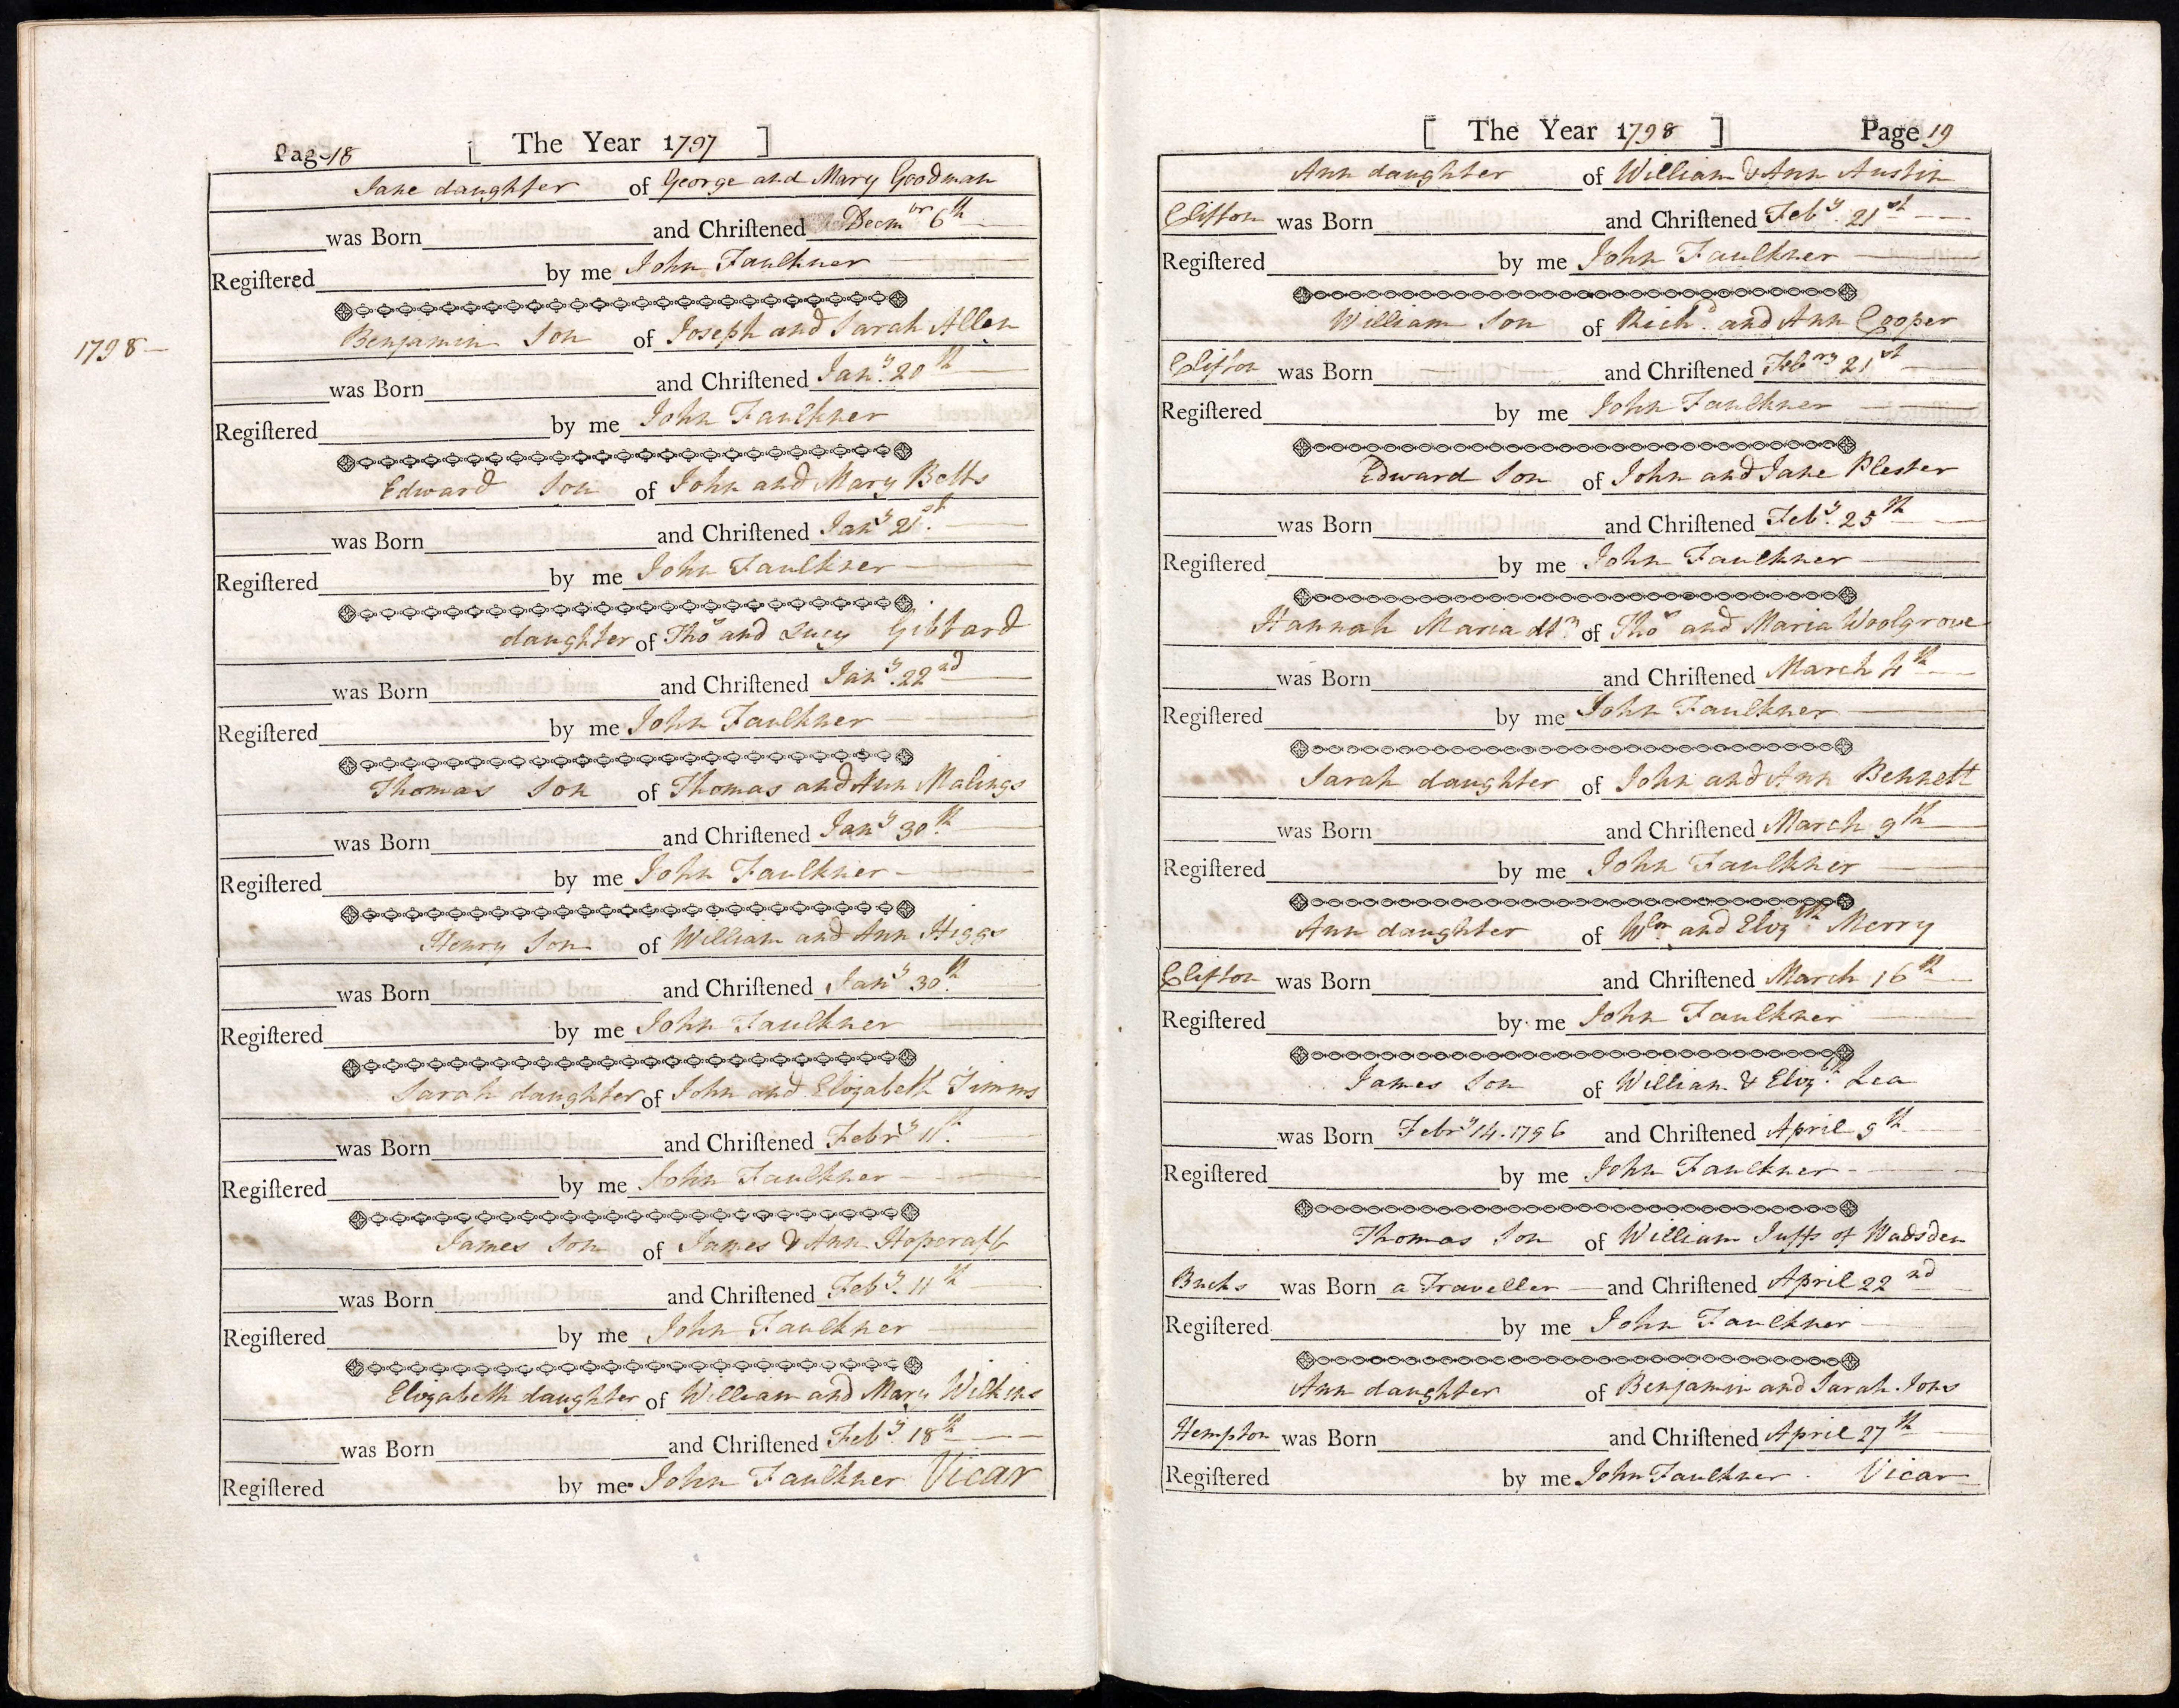 Page 18 [ The Year 1797 ]
Jane daughter of George and Mary Goodman
was Born and Chriſtened Decmbr 6th
Regiſtered by me John Faulkner
1798
Benjamin Son of Joseph and Sarah Allen
was Born and Chriſtened Jany. 20th
Regiſtered by me John Faulkner
Edward Son of John and Mary Betts
was Born and Chriſtened Jany 21st
Regiſtered by me John Faulkner
daughter of Thos and Lucy Gibbard
was Born and Chriſtened Jany. 22nd
Regiſtered by me John Faulkner
Thomas Son of Thomas and Ann Malings
was Born and Chriſtened Jany 30th
Regiſtered by me John Faulkner
Henry Son of William and Ann Higgs
was Born and Chriſtened Jany 30th
Regiſtered by me John Faulkner
Sarah daughter of John and Elizabeth Timms
was Born and Chriſtened Febry 11th
Regiſtered by me John Faulkner
James Son of James & Ann Hopcraft
was Born and Chriſtened Feby. 11th
Regiſtered by me John Faulkner
Elizabeth daughter of William and Mary Wilkins
was Born and Chriſtened Feby. 18th
Regiſtered by me John Faulkner Vicar
[ The Year 1798 ] Page 19
Ann daughter of William & Ann Austin
Clifton was Born and Chriſtened Feby. 21st
Regiſtered by me John Faulkner
William Son of Richd. and Ann Cooper
Clifton was Born and Chriſtened Febry 21st
Regiſtered by me John Faulkner
Edward Son of John and Jane Plester
was Born and Chriſtened Feby. 25th
Regiſtered by me John Faulkner
Hannah Maria dtr. of Thos and Maria Woolgrove
was Born and Chriſtened March 4th
Regiſtered by me John Faulkner
Sarah daughter of John and Ann Bennett
was Born and Chriſtened March 9th
Regiſtered by me John Faulkner
Ann daughter of Wm. and Elizth Merry
Clifton was Born and Chriſtened March 16th
Regiſtered by me John Faulkner
James Son of William & Elizth. Lea
was Born Febry 14. 1796 and Chriſtened April 9th
Regiſtered by me John Faulkner
Thomas Son of William Juffs of Wadsden
Bucks was Born a Traveller and Chriſtened April 22nd
Regiſtered by me John Faulkner
Ann daughter of Benjamin and Sarah Jons
Hempton was Born and Chriſtened April 27th
Regiſtered by me John Faulkner Vicar